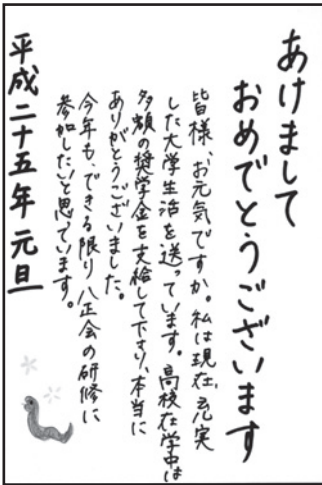 あけまして
おめでとうございます
皆様、お元気ですか。私は現在、充実
した大学生活を送っています。高校在学中は
多額の奨学金を支給して下さり、本当に
ありがとうございました。
今年も、できる限り八正会の研修に
参加したいと思っています。
平成二十五年 元旦